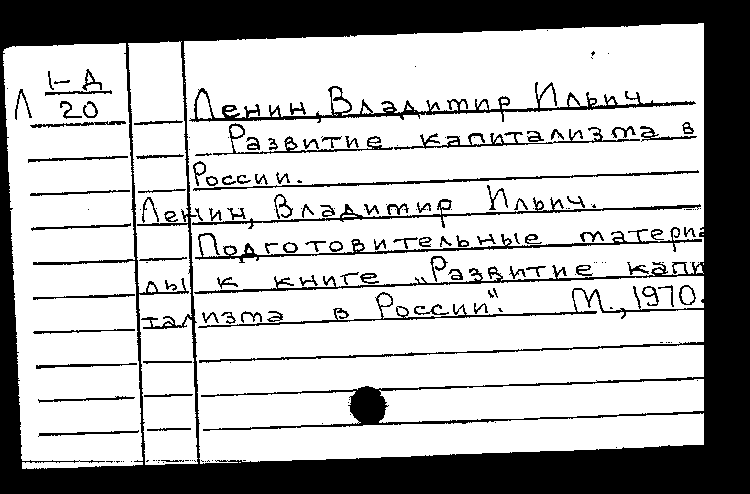 Л 1-Д
20
Ленин, Владимир Ильич.
Развитие капитализма в
России.
Ленин, Владимир Ильич.
Подготовительные материа
лы к книге „Развитие капи
тализма в России". М., 1970.